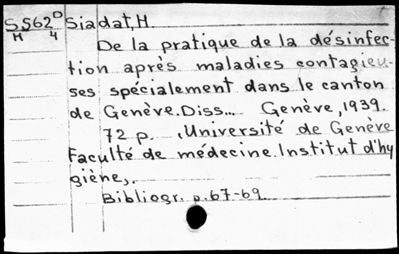 S562D Siadat, H.
H 4
De la pratique de la désinfec-
tion après maladies contagieu-
ses spécialement dans le canton
de Genève. Diss... Genève, 1939.
72 p. (Université de Genève
Faculté de médecine. Institut d'hy
giène).
Bibliogr. p. 67-69